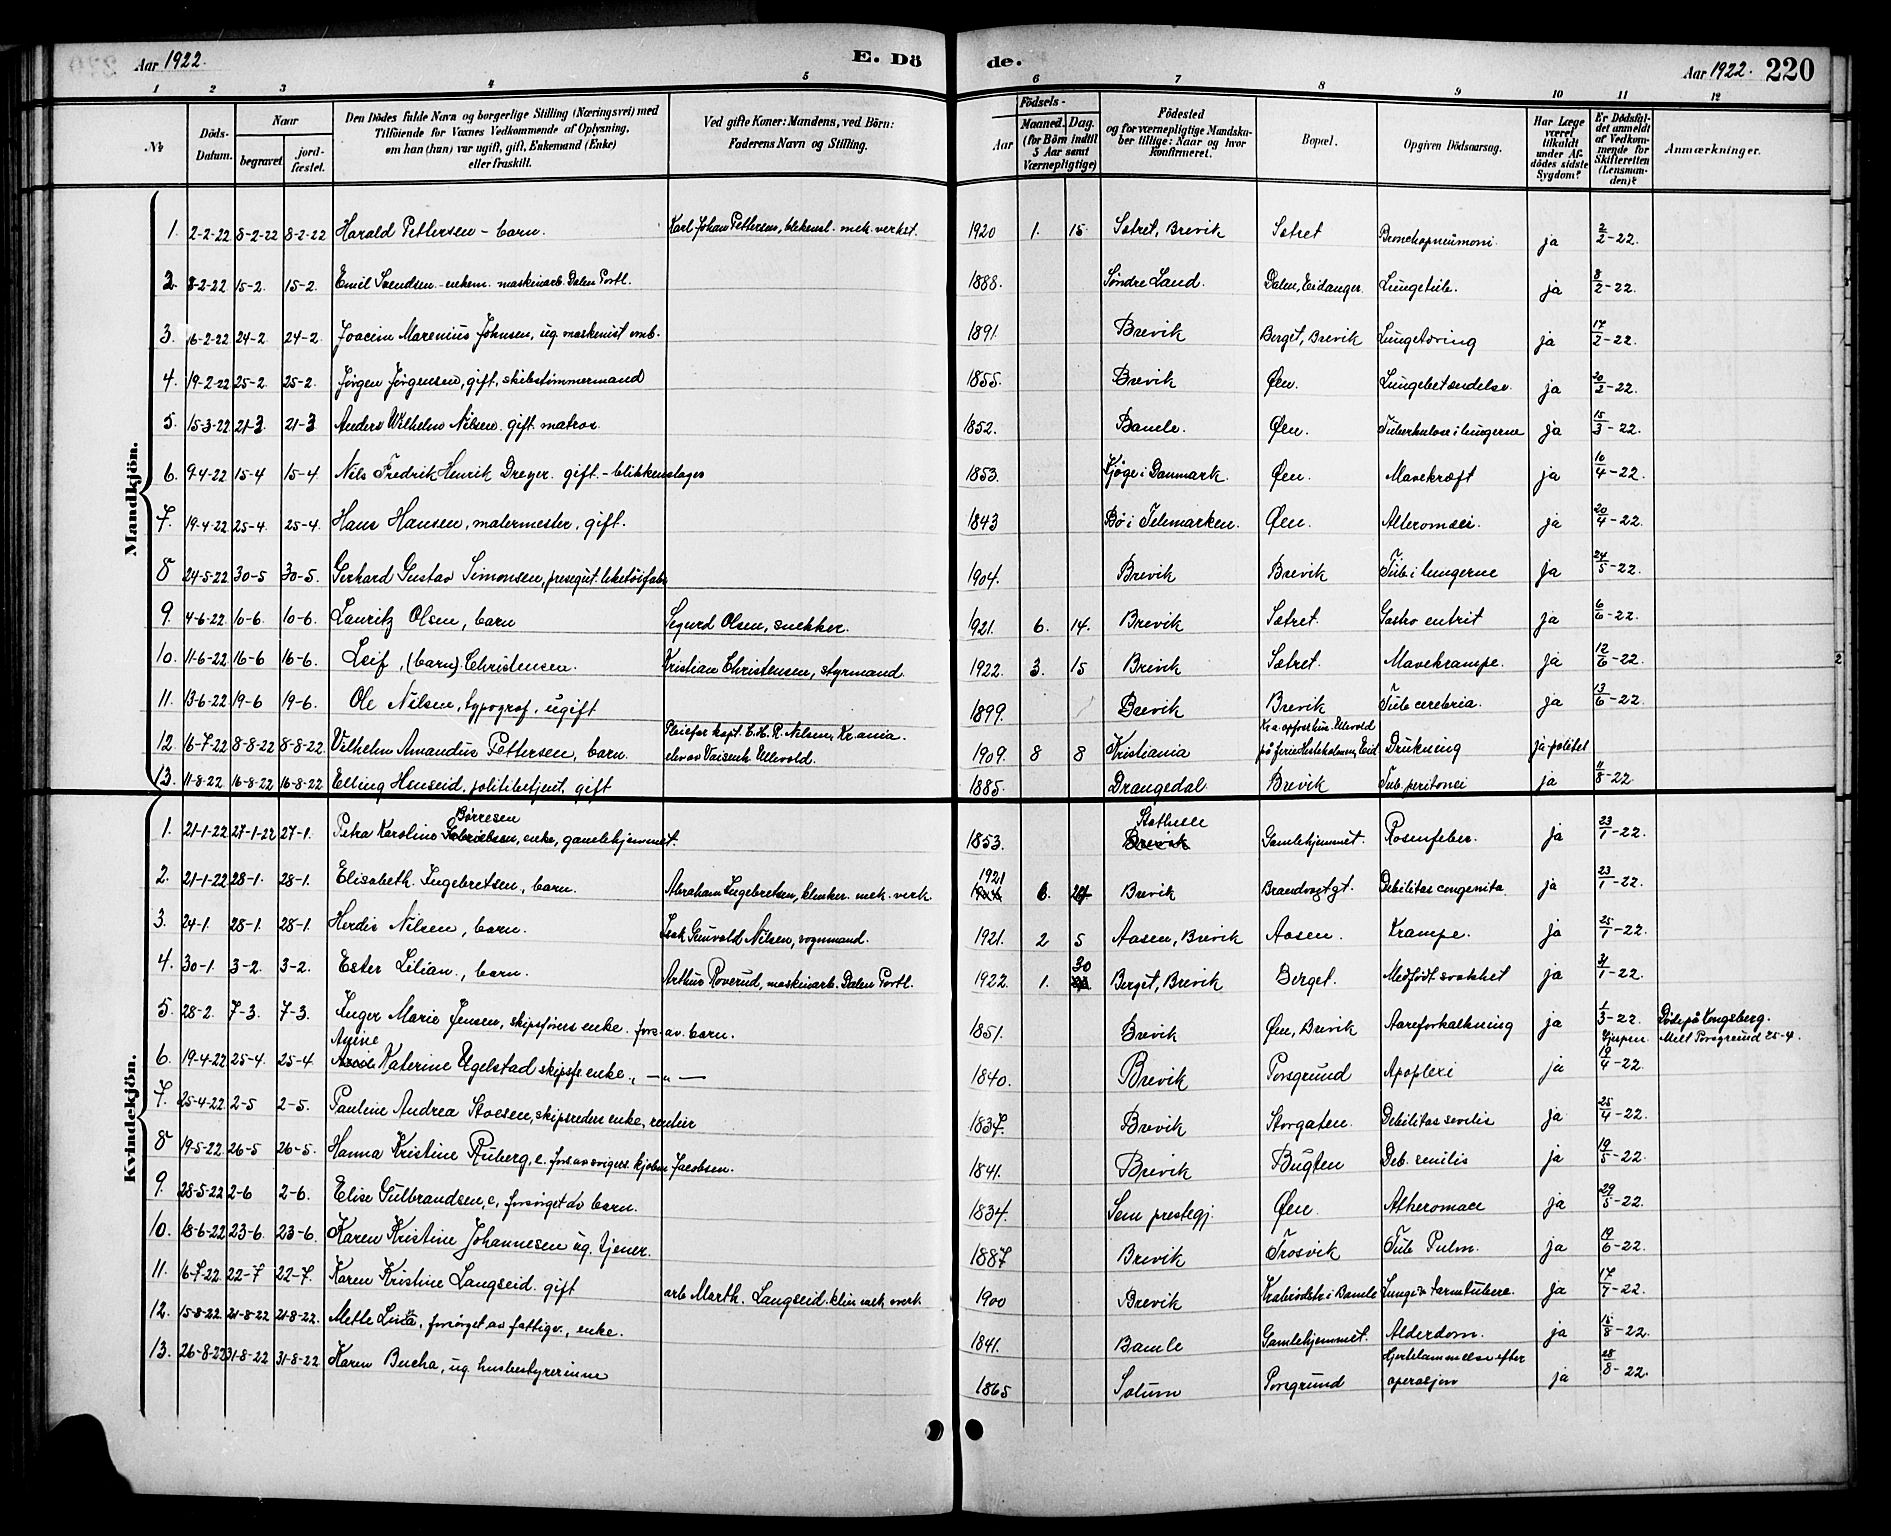 Aar 1922. E. Dö de. Aar 1922. 220
1 2 3 4 5 6 7 8 9 10 11 12
№ Döds-Datum. Naar begravet jord-fæstet. Den Dödes fulde Navn og borgerlige Stilling (Næringsvei) med Tilföiende for Voxnes Vedkommende af Oplysning, om han (hun) var ugift, gift, Enkemand (Enke) eller fraskilt. Ved gifte Koner: Mandens, ved Börn: Faderens Navn og Stilling. Födsels- Aar Maaned. Dag. (for Börn indtil 5 Aar samt Værnepligtige) Födested og for værnepligtige Mandskaber tillige: Naar og hvor konfirmeret. Bopæl. Opgiven Dödsaarsag. Har Læge været tilkaldt under Afdödes sidste Sygdom? Er Dödsfaldet anmeldt af Vedkommende for Skifteretten (Lensmanden)? Anmærkninger.
Mandkjön.
1. 2-2-22 8-2-22 8-2-22 Harald Pettersen - barn. Karl Johan Pettersen, mek. verkst. 1920 1. 15. Sætret, Brevik Sætret Bronchopneumoni ja 2/2-22.
2. 8-2-22 15-2. 15-2. Emil Svendsen - enkem. maskinarb. Dalen Portl. 1888. Søndre Land. Dalen, Eidanger. Lungetub. ja 8/2-22.
3. 16-2-22 24-2 24-2. Joacim Marenius Johnsen, ug. maskinist 1891. Brevik Berget, Brevik Lungetæring ja 17/2-22.
4. 19-2-22 25-2. 25-2. Jørgen Jørgensen, gift, skibstømmermand 1855. Brevik Øen. Lungebetændelse. ja 20/2-22.
5. 15-3-22 21-3 21-3 Anders Wilhelm Nilsen. gift matros 1852. Bamle. Øen. Tuberkulose i lungerne ja 15/3-22.
6. 9-4-22 15-4 15-4. Nils Fredrik Henrik Dreyer. gift. - blikkenslager 1853. Kjøge i Danmark. Øen. Mavekræft ja 10/4-22.
7. 19-4-22 25-4. 25-4. Hans Hansen, malermester, gift. 1843 Bø i Telemarken. Øen. ja 20/4-22.
8 24-5-22 30-5 30-5. Gerhard Gustav Simonsen, 1904. Brevik Brevik Tub i lungerne ja 24/5-22.
9. 4-6-22 10-6. 10-6. Lauritz Olsen, barn Sigurd Olsen, snekker. 1921. 6. 14. Brevik Sætret. Gastro entrit ja 6/6-22.
10. 11-6-22 16-6 16-6. Leif, (barn) Christensen. Kristian Christensen, styrmand. 1922. 3. 15 Brevik Sætret. Mavekrampe. ja 12/6-22.
11. 13-6-22 19-6 19-6. Ole Nilsen, typograf, ugift 1899. Brevik Brevik Tub cerebria. ja 13/6-22.
12 16-7-22 8-8-22 8-8-22. Vilhelm Amandus Pettersen, barn. Pleiefar kapt. E. H. R. Nilsen, Kr.ania. elev av Vaisenh. Ullevold. 1909. 8 8 Kristiania Drukning ja politet
13. 11-8-22 16-8-22 16-8-22 Elling Henseid, politibetjent, gift 1885. Drangedal Brevik Tub. peritonei ja 11/8-22
Kvindekjön.
1. 21-1-22 27-1-22 27-1. Petra Karoline Børresen, enke, gamlehjemmet. 1853. Stathelle Brevik Gamlehjemmet. Rosenfeber. ja 23/1-22.
2. 21-1-22 28-1. 28-1. Elisabeth Ingebretsen, barn. Abraham Ingebretsen, klinker. mek. verk. 1921 6. Brevik Brandvagtgt. Debilitas congenita ja 23/1-22.
3. 24-1. 28-1. 28-1. Herdis Nilsen, barn. Isak Grunvold Nilsen, vognmand. 1921. 2 5 Aasen, Brevik Aasen. Krampe. ja 25/1-22.
4. 30-1. 3-2. 3-2. Ester Lilian, barn. Arthur Roverud, maskinarb. Dalen Portl. 1922. 1. 30 Berget, Brevik Berget. Medfødt svakhet ja 31/1-22
5. 28-2. 7-3. 7-3. Inger Marie Jensen, skipsførers enke. fors. av barn. 1851. Brevik Øen, Brevik Aareforkalkning ja 1/3-22. Døde på Kongsberg.
6. 19-4-22 25-4. 25-4 Anine Katerine Ugelstad skipsf. enke, -"- 1840. Brevik Porsgrund Apoplexi ja Gjerpen 19/4-22. Melt Porsgrund 25-4.
7. 25-4-22 2-5 2-5. Pauline Andrea Stoesen, skipsreders enke, rentier 1837. Brevik Storgaten. Debilitas senilis ja 25/4-22.
8 19-5-22 26-5 26-5. Hanna Kristine Ruberg, e. fors av svigers. kjøbm Jacobsen. 1841. Brevik Bugten Deb. senilis ja 19/5-22.
9. 28-5-22 2-6 2-6. Elise Gulbrandsen, e, forsørget av barn. 1834. Sem prestegj. Øen. ja 29/5-22.
10. 18-6-22 23-6. 23-6. Karen Kristine Johannesen ug. tjener. 1887 Brevik Trosvik Tub Pulm. ja 19/6-22.
11. 16-7-22 22-7 22-7. Karen Kristine Langseid. gift arb Marth. Langseid. klin mek verk. 1900 Brevik i Bamle Lunge & tarmtuberc. ja 17/7-22.
12. 15-8-22 21-8-22 21-8-22. Mette Lina, forsørget av fattigv., enke. 1841. Bamle Gamlehjemmet. Alderdom. ja 15/8-22.
13. 26-8-22 31-8-22 31-8-22 Karen Bucha, ug. husbestyrerinne 1865 Solum Porsgrund Hjertelammelse efter operasjon ja 28/8-22.